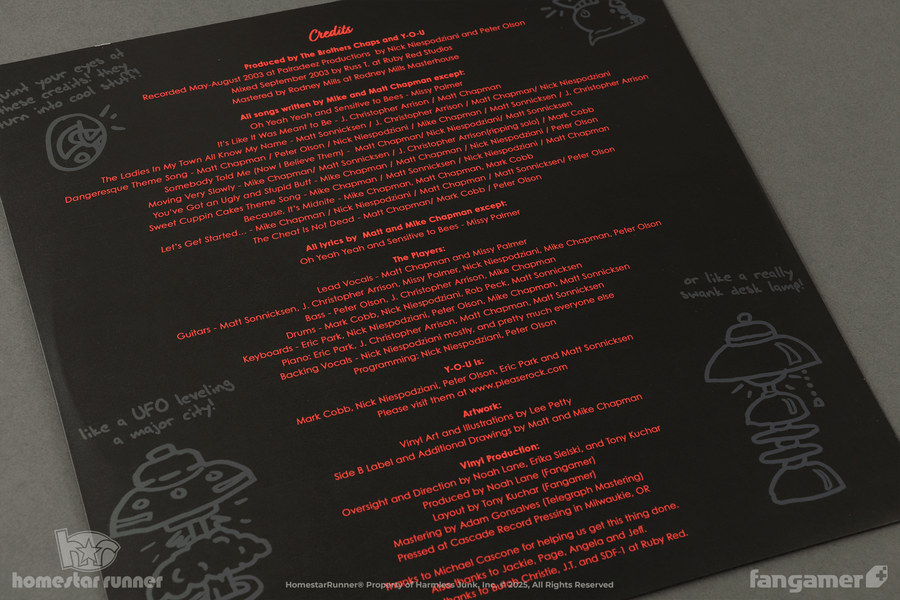 Credits
Produced by The Brothers Chaps and Y-O-U
Recorded May-August 2003 at Pairadeez Productions by Nick Niespodziani and Peter Olson
Mixed September 2003 by Russ T. at Ruby Red Studios
Mastered by Rodney Mills at Rodney Mills Masterhouse
All songs written by Mike and Matt Chapman except:
Oh Yeah Yeah and Sensitive to Bees - Missy Palmer
It's Like It Was Meant to Be - J. Christopher Arrison / Matt Chapman
The Ladies In My Town All Know My Name - Matt Sonnicksen / J. Christopher Arrison / Matt Chapman/ Nick Niespodziani
Dangeresque Theme Song - Matt Chapman / Peter Olson / Nick Niespodziani / Mike Chapman / Matt Sonnicksen / J. Christopher Arrison
Somebody Told Me (Now I Believe Them) - Matt Chapman/ Nick Niespodziani/ Matt Sonnicksen
Moving Very Slowly - Mike Chapman/ Matt Sonnicksen / J. Christopher Arrison(ripping solo) / Mark Cobb
You've Got an Ugly and Stupid Butt - Mike Chapman / Matt Chapman / Nick Niespodziani / Peter Olson
Sweet Cuppin Cakes Theme Song - Mike Chapman / Matt Sonnicksen / Nick Niespodziani / Matt Chapman
Because, It's Midnite - Mike Chapman, Matt Chapman, Mark Cobb
Let's Get Started... - Mike Chapman / Nick Niespodziani / Matt Chapman / Matt Sonnicksen/ Peter Olson
The Cheat Is Not Dead - Matt Chapman/ Mark Cobb / Peter Olson
All lyrics by Matt and Mike Chapman except:
Oh Yeah Yeah and Sensitive to Bees - Missy Palmer
The Players:
Lead Vocals - Matt Chapman and Missy Palmer
Guitars - Matt Sonnicksen, J. Christopher Arrison, Missy Palmer, Nick Niespodziani, Mike Chapman, Peter Olson
Bass - Peter Olson, J. Christopher Arrison, Mike Chapman
Drums - Mark Cobb, Nick Niespodziani, Rob Peck, Matt Sonnicksen
Keyboards - Eric Park, Nick Niespodziani, Peter Olson, Mike Chapman, Matt Sonnicksen
Piano: Eric Park, J. Christopher Arrison, Matt Chapman, Matt Sonnicksen
Backing Vocals - Nick Niespodziani mostly, and pretty much everyone else
Programming: Nick Niespodziani, Peter Olson
Y-O-U Is:
Mark Cobb, Nick Niespodziani, Peter Olson, Eric Park and Matt Sonnicksen
Please visit them at www.pleaserock.com
Artwork:
Vinyl Art and Illustrations by Lee Petty
Side B Label and Additional Drawings by Matt and Mike Chapman
Vinyl Production:
Oversight and Direction by Noah Lane, Erika Sielski, and Tony Kuchar
Produced by Noah Lane (Fangamer)
Layout by Tony Kuchar (Fangamer)
Mastering by Adam Gonsalves (Telegraph Mastering)
Pressed at Cascade Record Pressing in Milwaukie, OR
Thanks to Michael Cascone for helping us get this thing done.
Also thanks to Jackie, Page, Angela and Jeff.
thanks to Butch, Christie, J.T. and SDF-1 at Ruby Red.
your eyes at
these credits, they
turn into cool stuff!
or like a really
swank desk lamp!
like a UFO leveling
a major city!
h★r
homestar runner
HomestarRunner® Property of Harmless Junk, Inc. © 2025, All Rights Reserved
fangamer